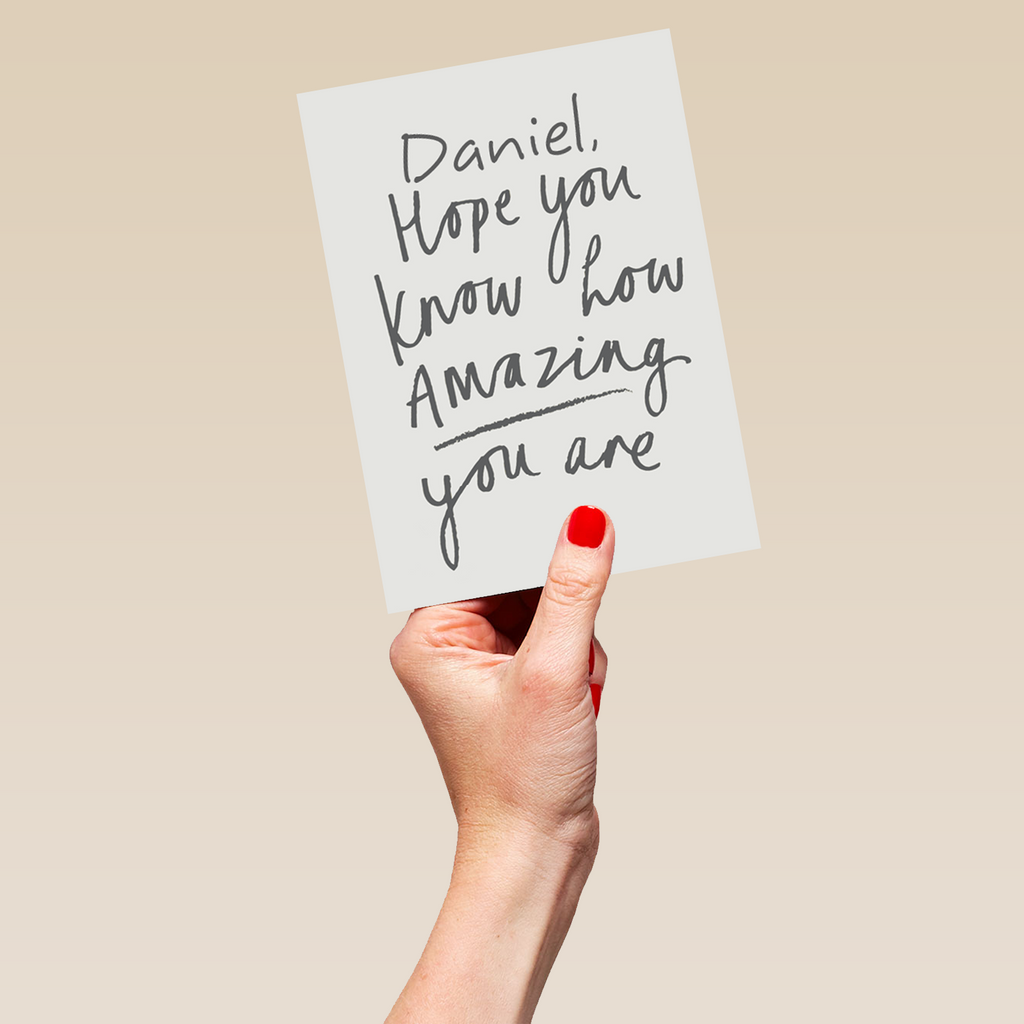 Daniel,
Hope you
know how
Amazing
you are